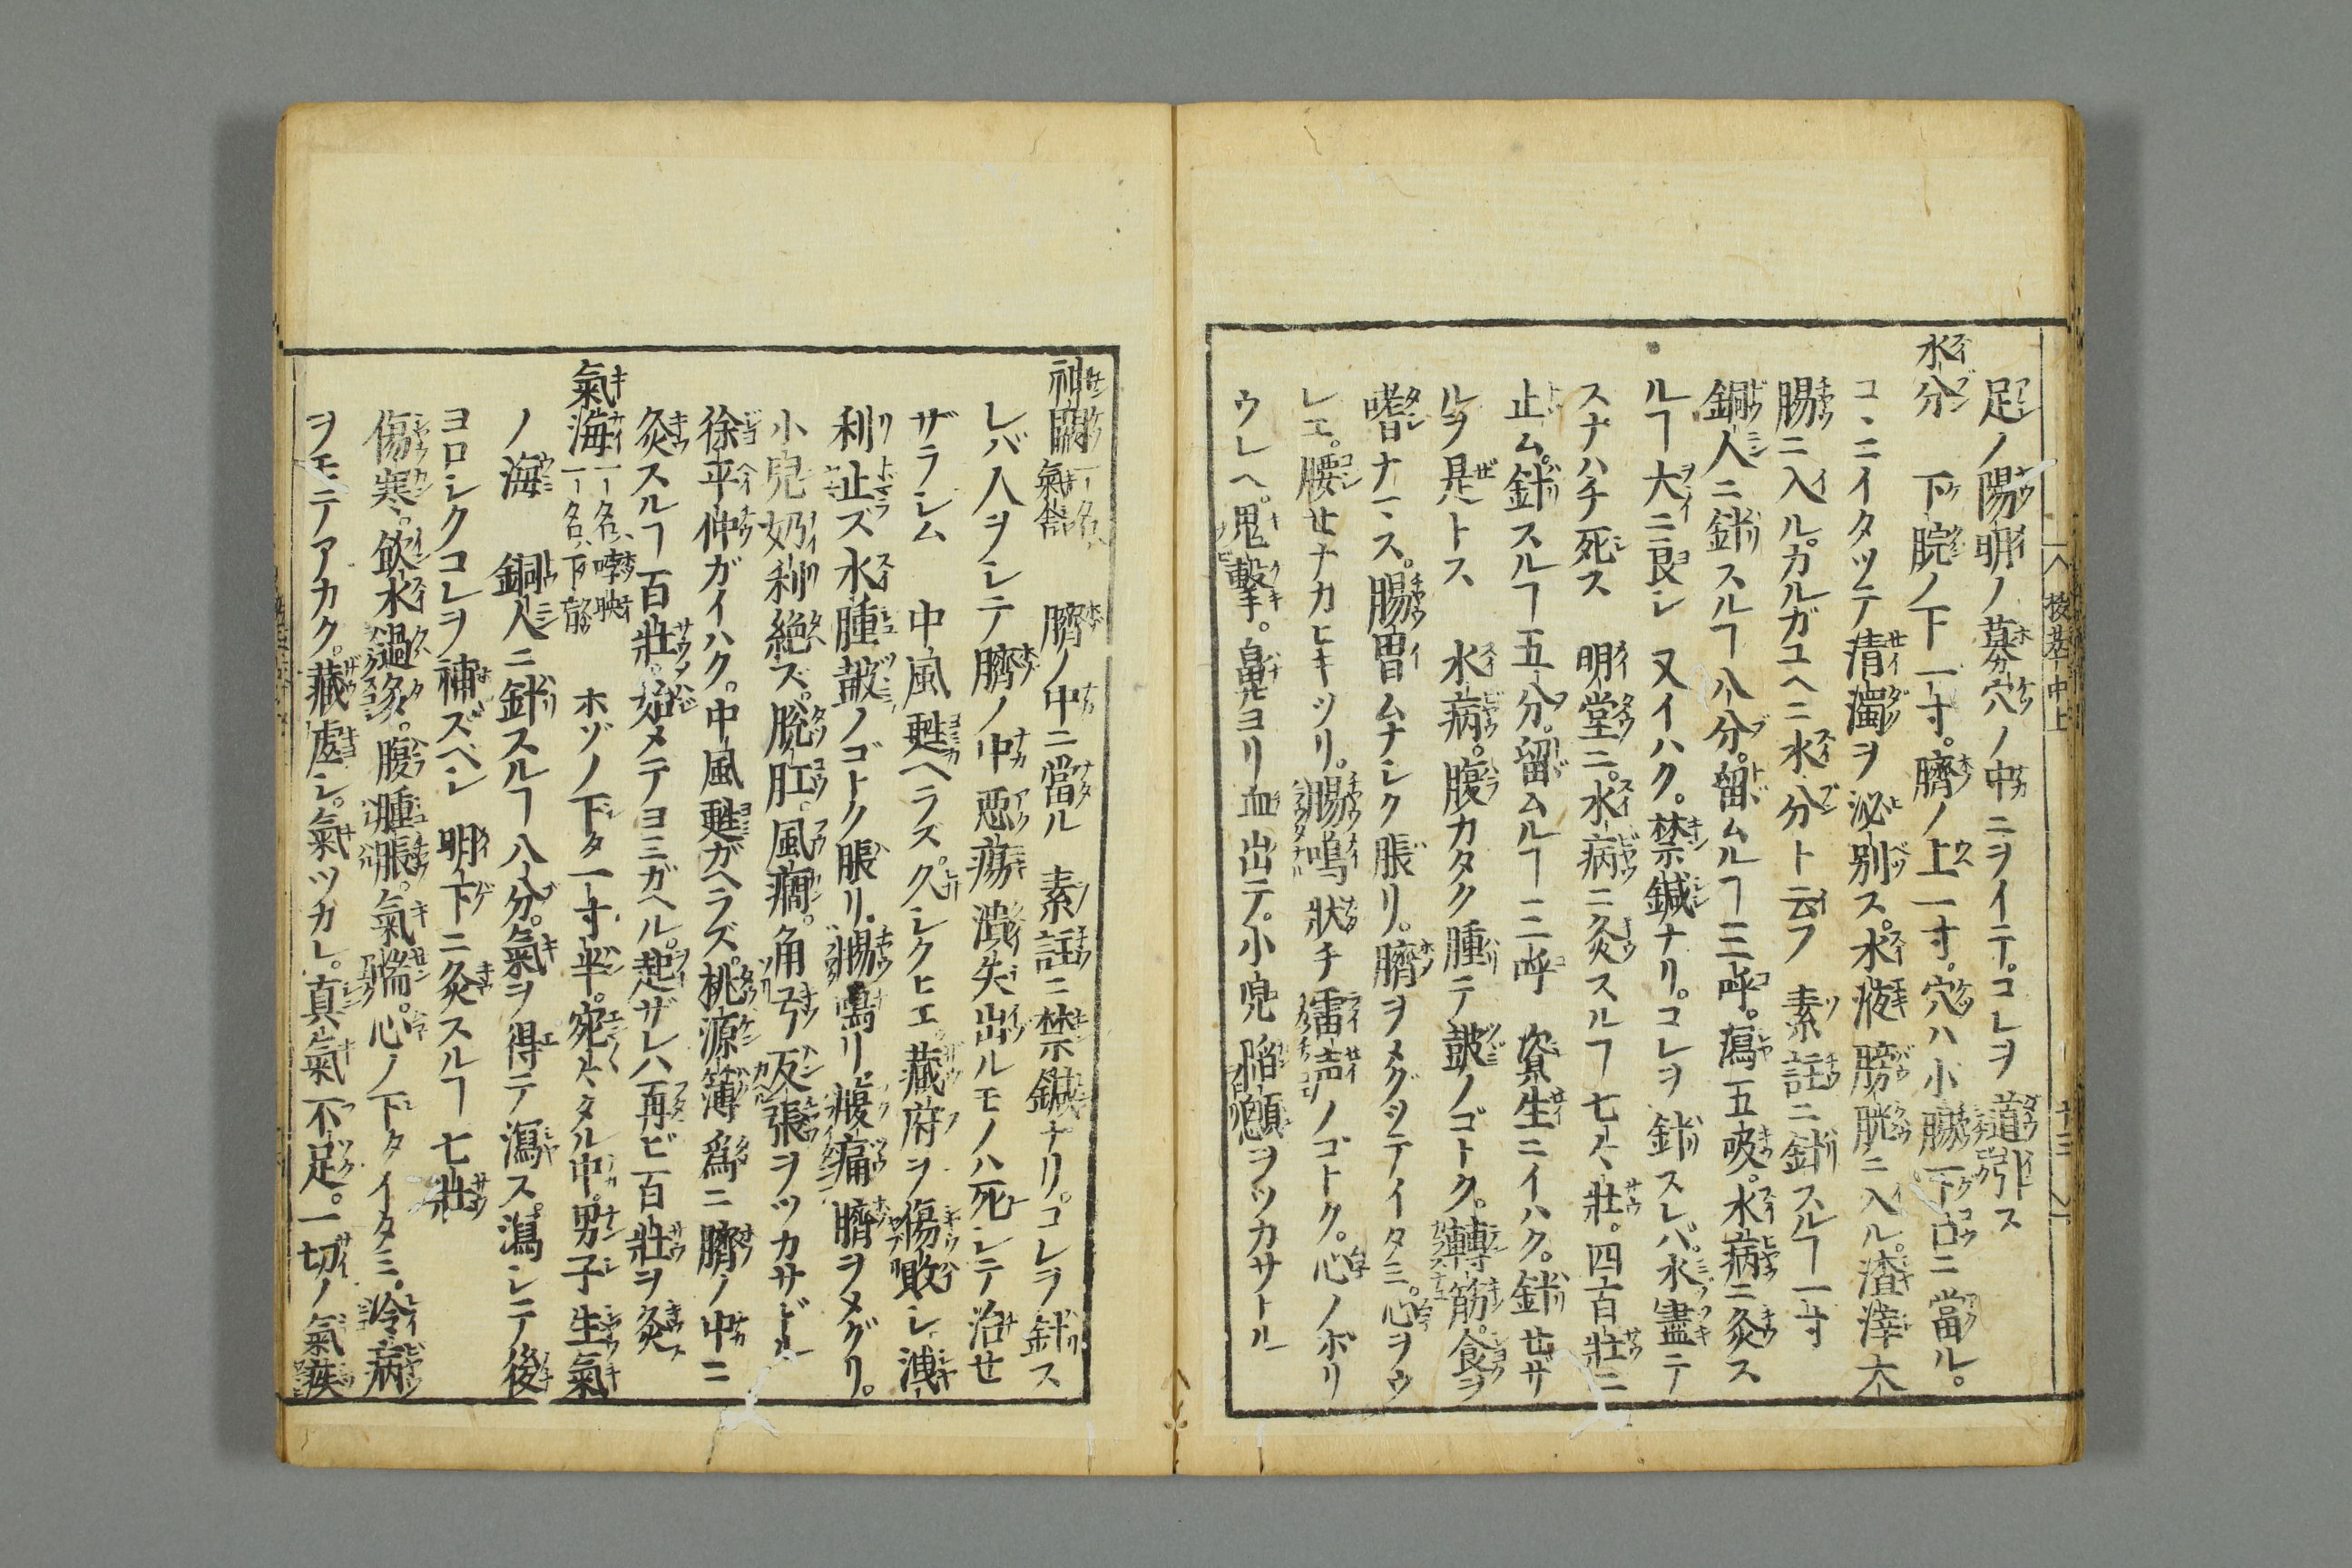 足ノ陽明ノ募穴ノ中ニヲイテ。コレヲ導引ス
水分　下脘ノ下一寸。臍ノ上一寸。穴ハ小腸下口ニ當ル。
コヽニイタツテ清濁ヲ泌別ス。水液膀胱ニ入ル。渣滓大
腸ニ入ル。カルガユヘニ水分ト云フ　素註ニ針スルヿ一寸
銅人ニ針スルヿ八分。留ムルヿ三呼。瀉五吸。水病ニ灸ス
ルヿ大ニ良シ　又イハク。禁鍼ナリ。コレヲ針スレバ。水盡テ
スナハチ死ス　明堂ニ。水病ニ灸スルヿ七々壮。四百壮ニ
止ム。針スルヿ五分。留ムルヿ三呼　資生ニイハク。針セザ
ルヲ是トス　水病。腹カタク腫テ皷ノゴトク。轉筋。食ヲ
嗜ナマス。腸胃ムナシク脹リ。臍ヲメグツテイタミ。心ヲウ
レエ。腰セナカヒキツリ。腸鳴狀チ雷声ノゴトク。心ノボリ
ウレヘ。鬼撃。鼻ヨリ血出テ。小兒陥顖ヲツカサトル
神闕 一名、氣舎　臍ノ中ニ當ル　素註ニ禁鍼ナリ。コレヲ針ス
レバ人ヲシテ臍ノ中悪瘍潰矢出ルモノハ死シテ治セ
ザラシム　中風甦ヘラズ。久シクヒエ。藏府ヲ傷敗シ。洩
利止ズ水腫皷ノゴトク脹リ。腸鳴リ。腹痛臍ヲメグリ。
小兒奶利絶ズ。脱肛。風癇。角弓反張ヲツカサドル
徐平仲ガイハク。中風甦ガヘラズ。桃源簿爲ニ臍ノ中ニ
灸スルヿ百壮。始メテヨミガヘル。起ザレハ再ビ百壮ヲ灸
氣海 一名、脖胦 一名、下肓　ホゾノ下タ一寸半。宛々タル中。男子生氣
ノ海　銅人ニ針スルヿ八分。氣ヲ得テ瀉ス。瀉シテ後
ヨロシクコレヲ補ズベシ　明下ニ灸スルヿ七壮
傷寒。飲水過多。腹腫脹。氣喘。心ノ下タイタミ。冷病
ヲモテアカク。藏虚シ。氣ツカレ。真氣不足。一切ノ氣疾